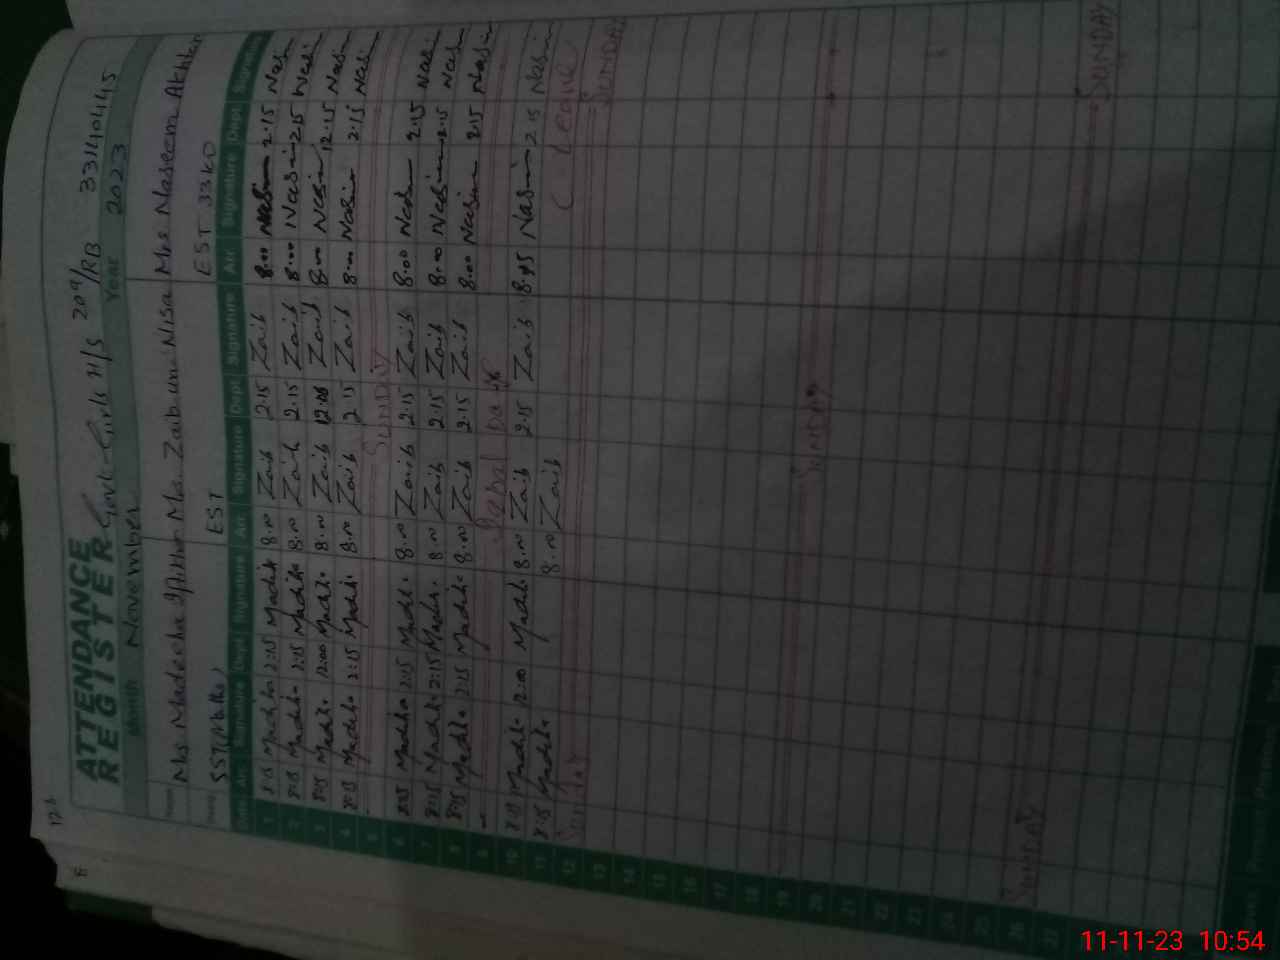 ATTENDANCE
REGISTER Govt Girls H/S 209/RB 33140445
Month November Year 2023
Name Ms Madeeha Iftikhar Ms. Zaib un Nisa Mrs Naseem Akhtar
SST(Maths) EST EST 33KD
Date Arr. Signature Dept Signature Arr. Signature Dept Signature Arr. Signature Dept Signature
1 8:15 Madiha 2:15 Madiha 8:00 Zaib 2:15 Zaib 8:00 Nasim 2:15 Nasim
2 8:15 Madiha 2:15 Madiha 8:00 Zaib 2:15 Zaib 8:00 Nasim 2:15 Nasim
3 8:15 Madiha 12:00 Madiha 8:00 Zaib Zaib 8:00 Nasim 12:15 Nasim
4 8:15 Madiha 2:15 Madiha 8:00 Zaib 2:15 Zaib 8:00 Nasim 2:15 Nasim
5 SUNDAY
6 8:15 Madiha 2:15 Madiha 8:00 Zaib 2:15 Zaib 8:00 Nasim 2:15 Nasim
7 8:15 Madiha 2:15 Madiha 8:00 Zaib 2:15 Zaib 8:00 Nasim 2:15 Nasim
8 8:15 Madiha 2:15 Madiha 8:00 Zaib 2:15 Zaib 8:00 Nasim 2:15 Nasim
9 Iqbal Day
10 8:15 Madiha 12:00 Madiha 8:00 Zaib 2:15 Zaib 8:45 Nasim 2:15 Nasim
11 8:15 Madiha 8:00 Zaib C Leave
12 Sunday SUNDAY
13
14
15
16
17
18
19 SUNDAY
20
21
22
23
24
25
26 SUNDAY SUNDAY
27
11-11-23 10:54